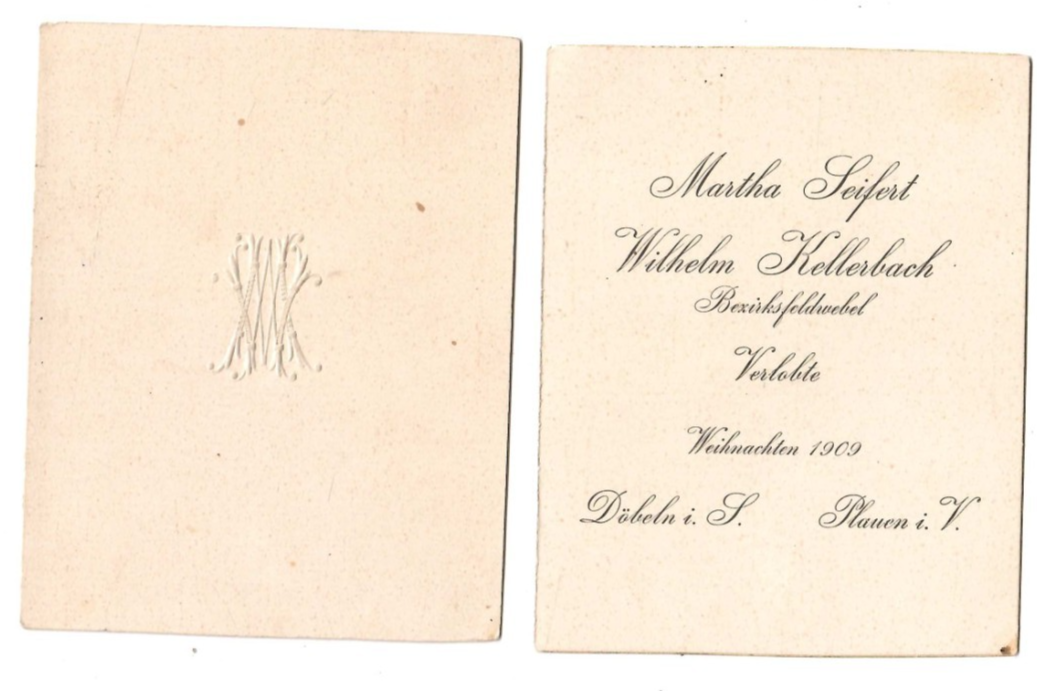 Martha Seifert
Wilhelm Kellerbach
Bezirksfeldwebel
Verlobte
Weihnachten 1909
Döbeln i. S. Plauen i. V.